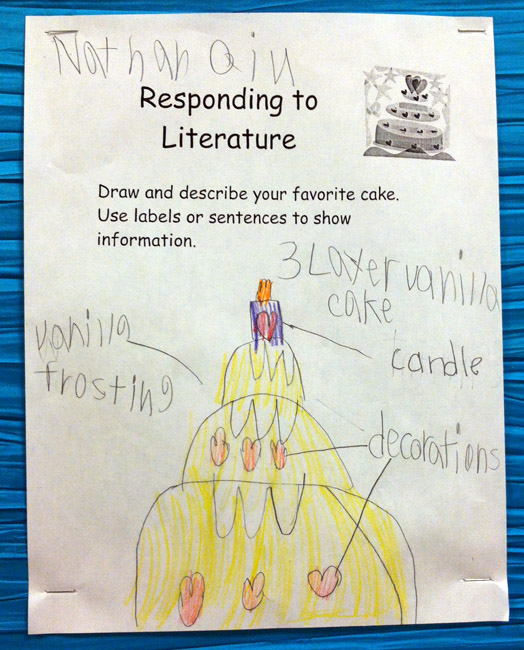 Nathan Qiu
Responding to
Literature
Draw and describe your favorite cake.
Use labels or sentences to show
information.
3 Layer vanilla
cake
vanilla
frosting
candle
decorations